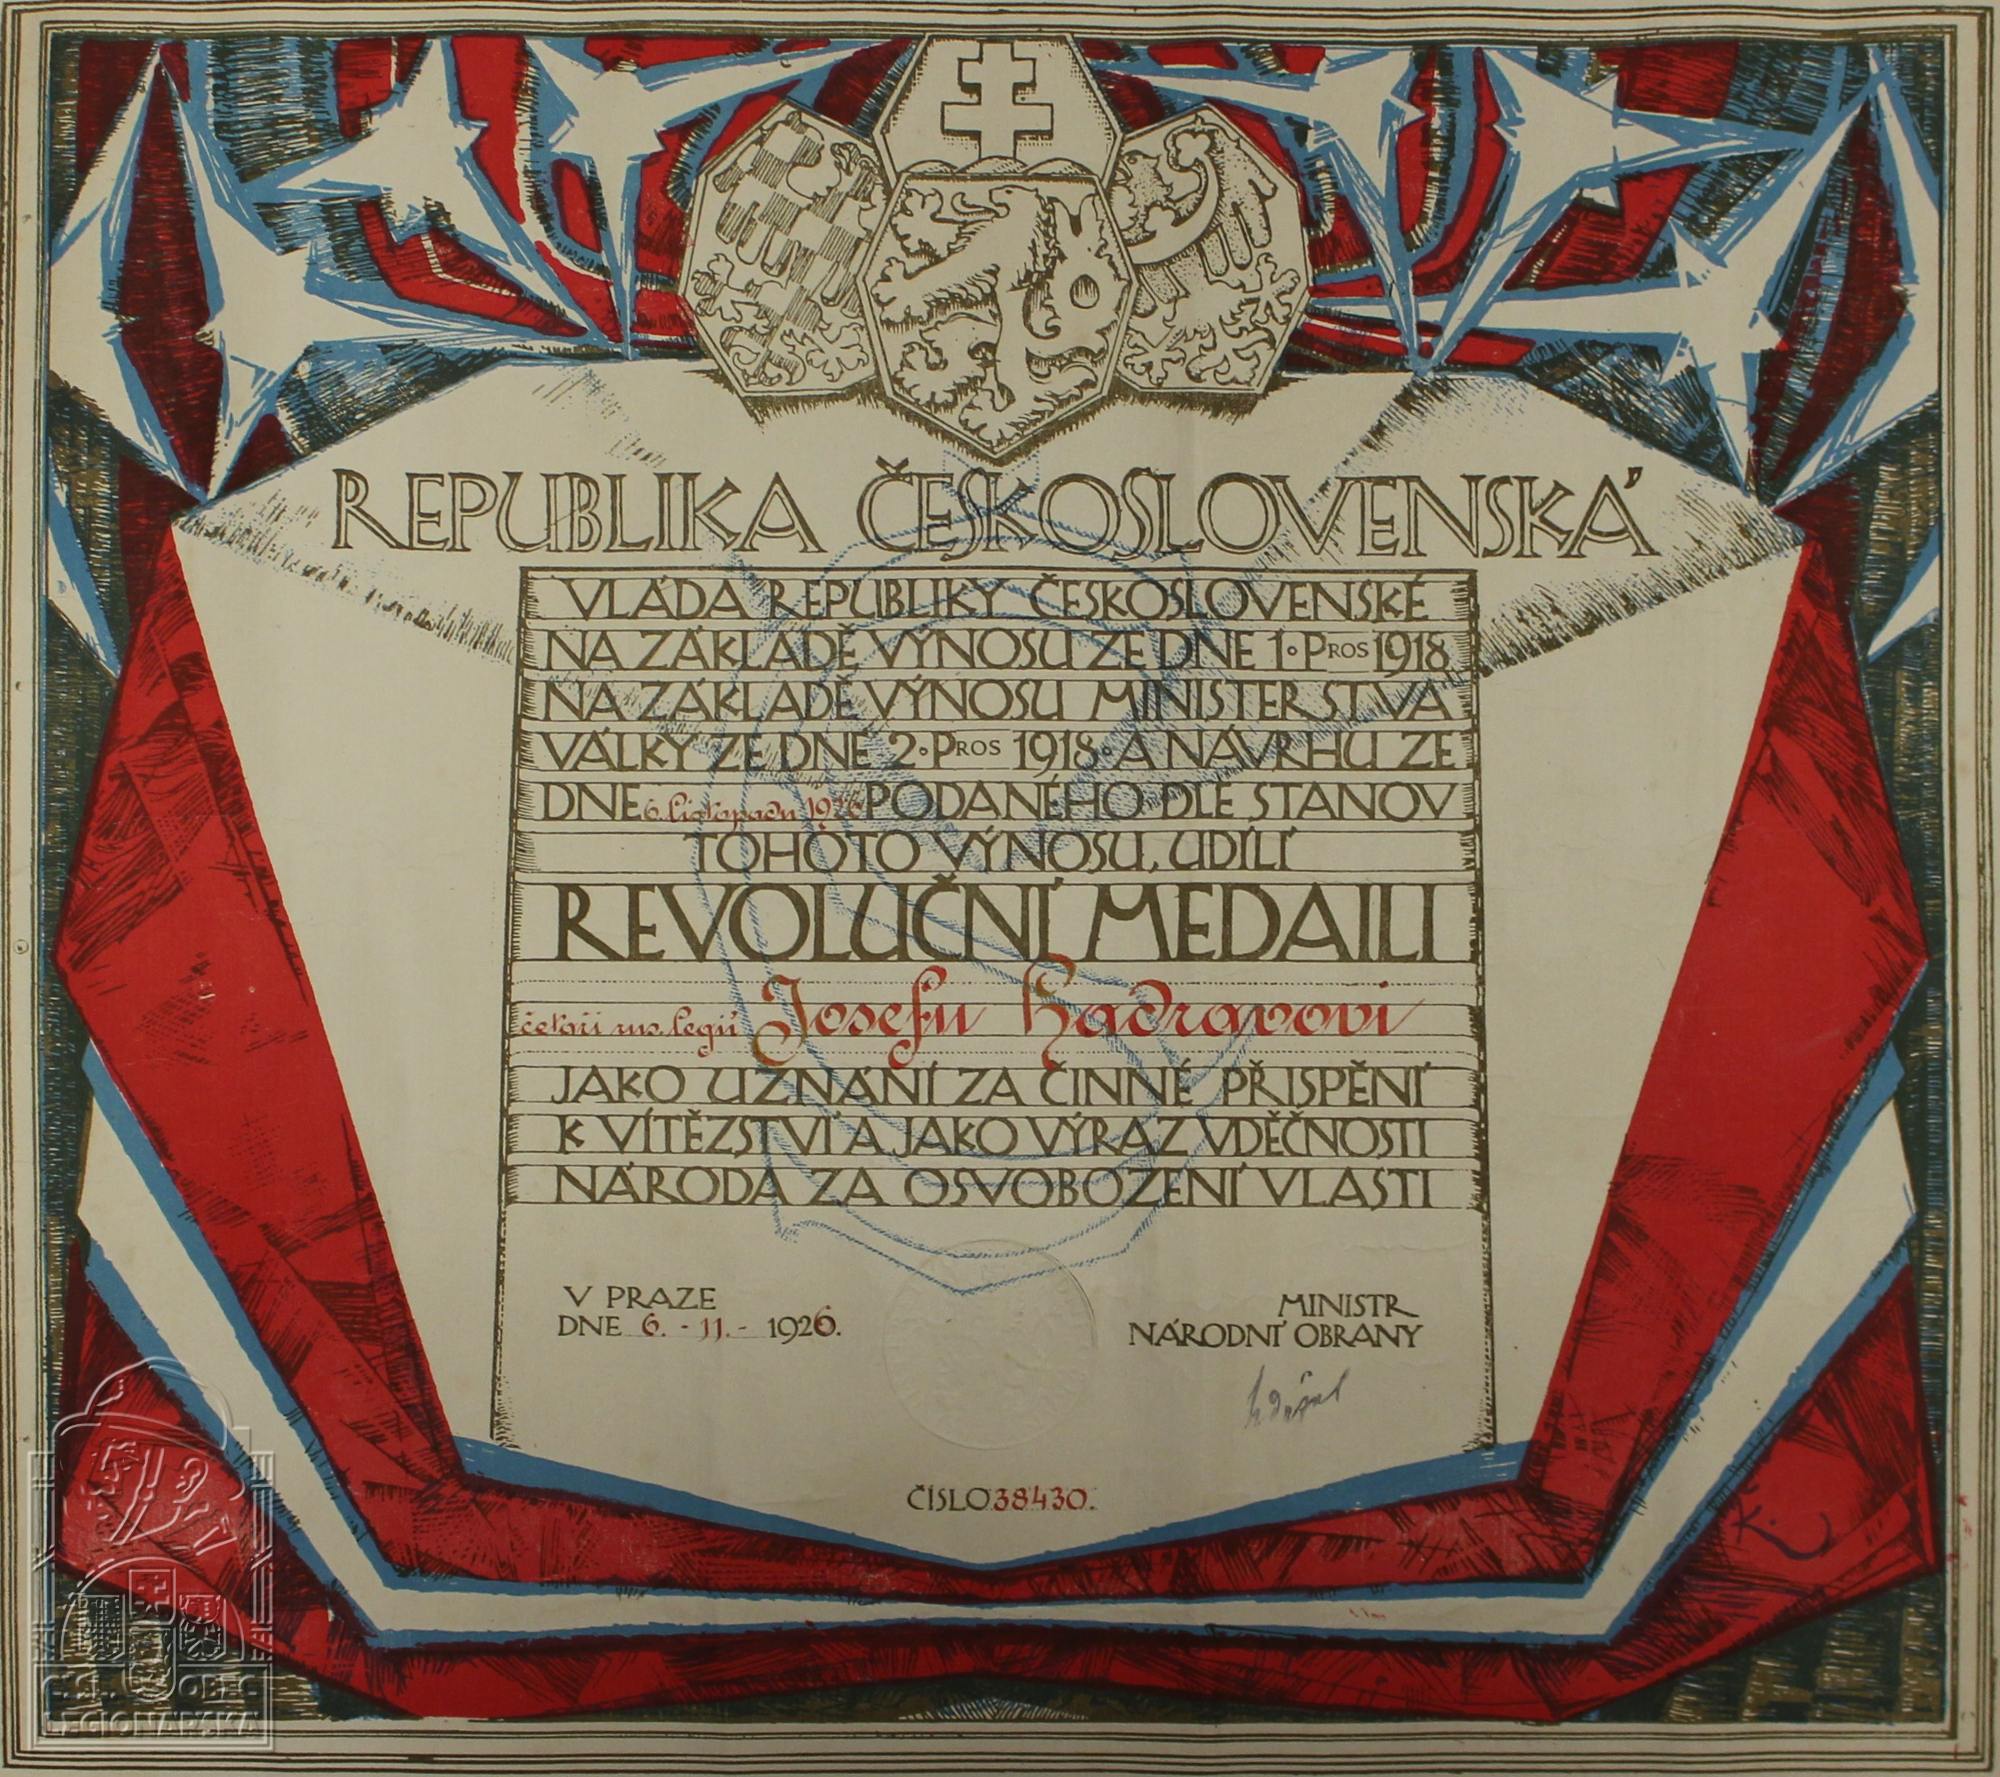 REPUBLIKA ČESKOSLOVENSKÁ
VLÁDA REPUBLIKY ČESKOSLOVENSKÉ
NA ZÁKLADĚ VÝNOSU ZE DNE 1. PROS 1918
NA ZÁKLADĚ VÝNOSU MINISTERSTVA
VÁLKY ZE DNE 2. PROS 1918. A NÁVRHU ZE
DNE 6. listopadu 1926 PODANÉHO DLE STANOV
TOHOTO VÝNOSU, UDÍLÍ
REVOLUČNÍ MEDAILI
četaři rus. legií Josefu Hadravovi
JAKO UZNÁNÍ ZA ČINNÉ PŘISPĚNÍ
K VÍTĚZSTVÍ A JAKO VÝRAZ VDĚČNOSTI
NÁRODA ZA OSVOBOZENÍ VLASTI
V PRAZE
DNE 6. - 11. - 1926.
MINISTR
NÁRODNÍ OBRANY
ČÍSLO 38430.
Č.S. OBEC
LEGIONÁŘSKÁ